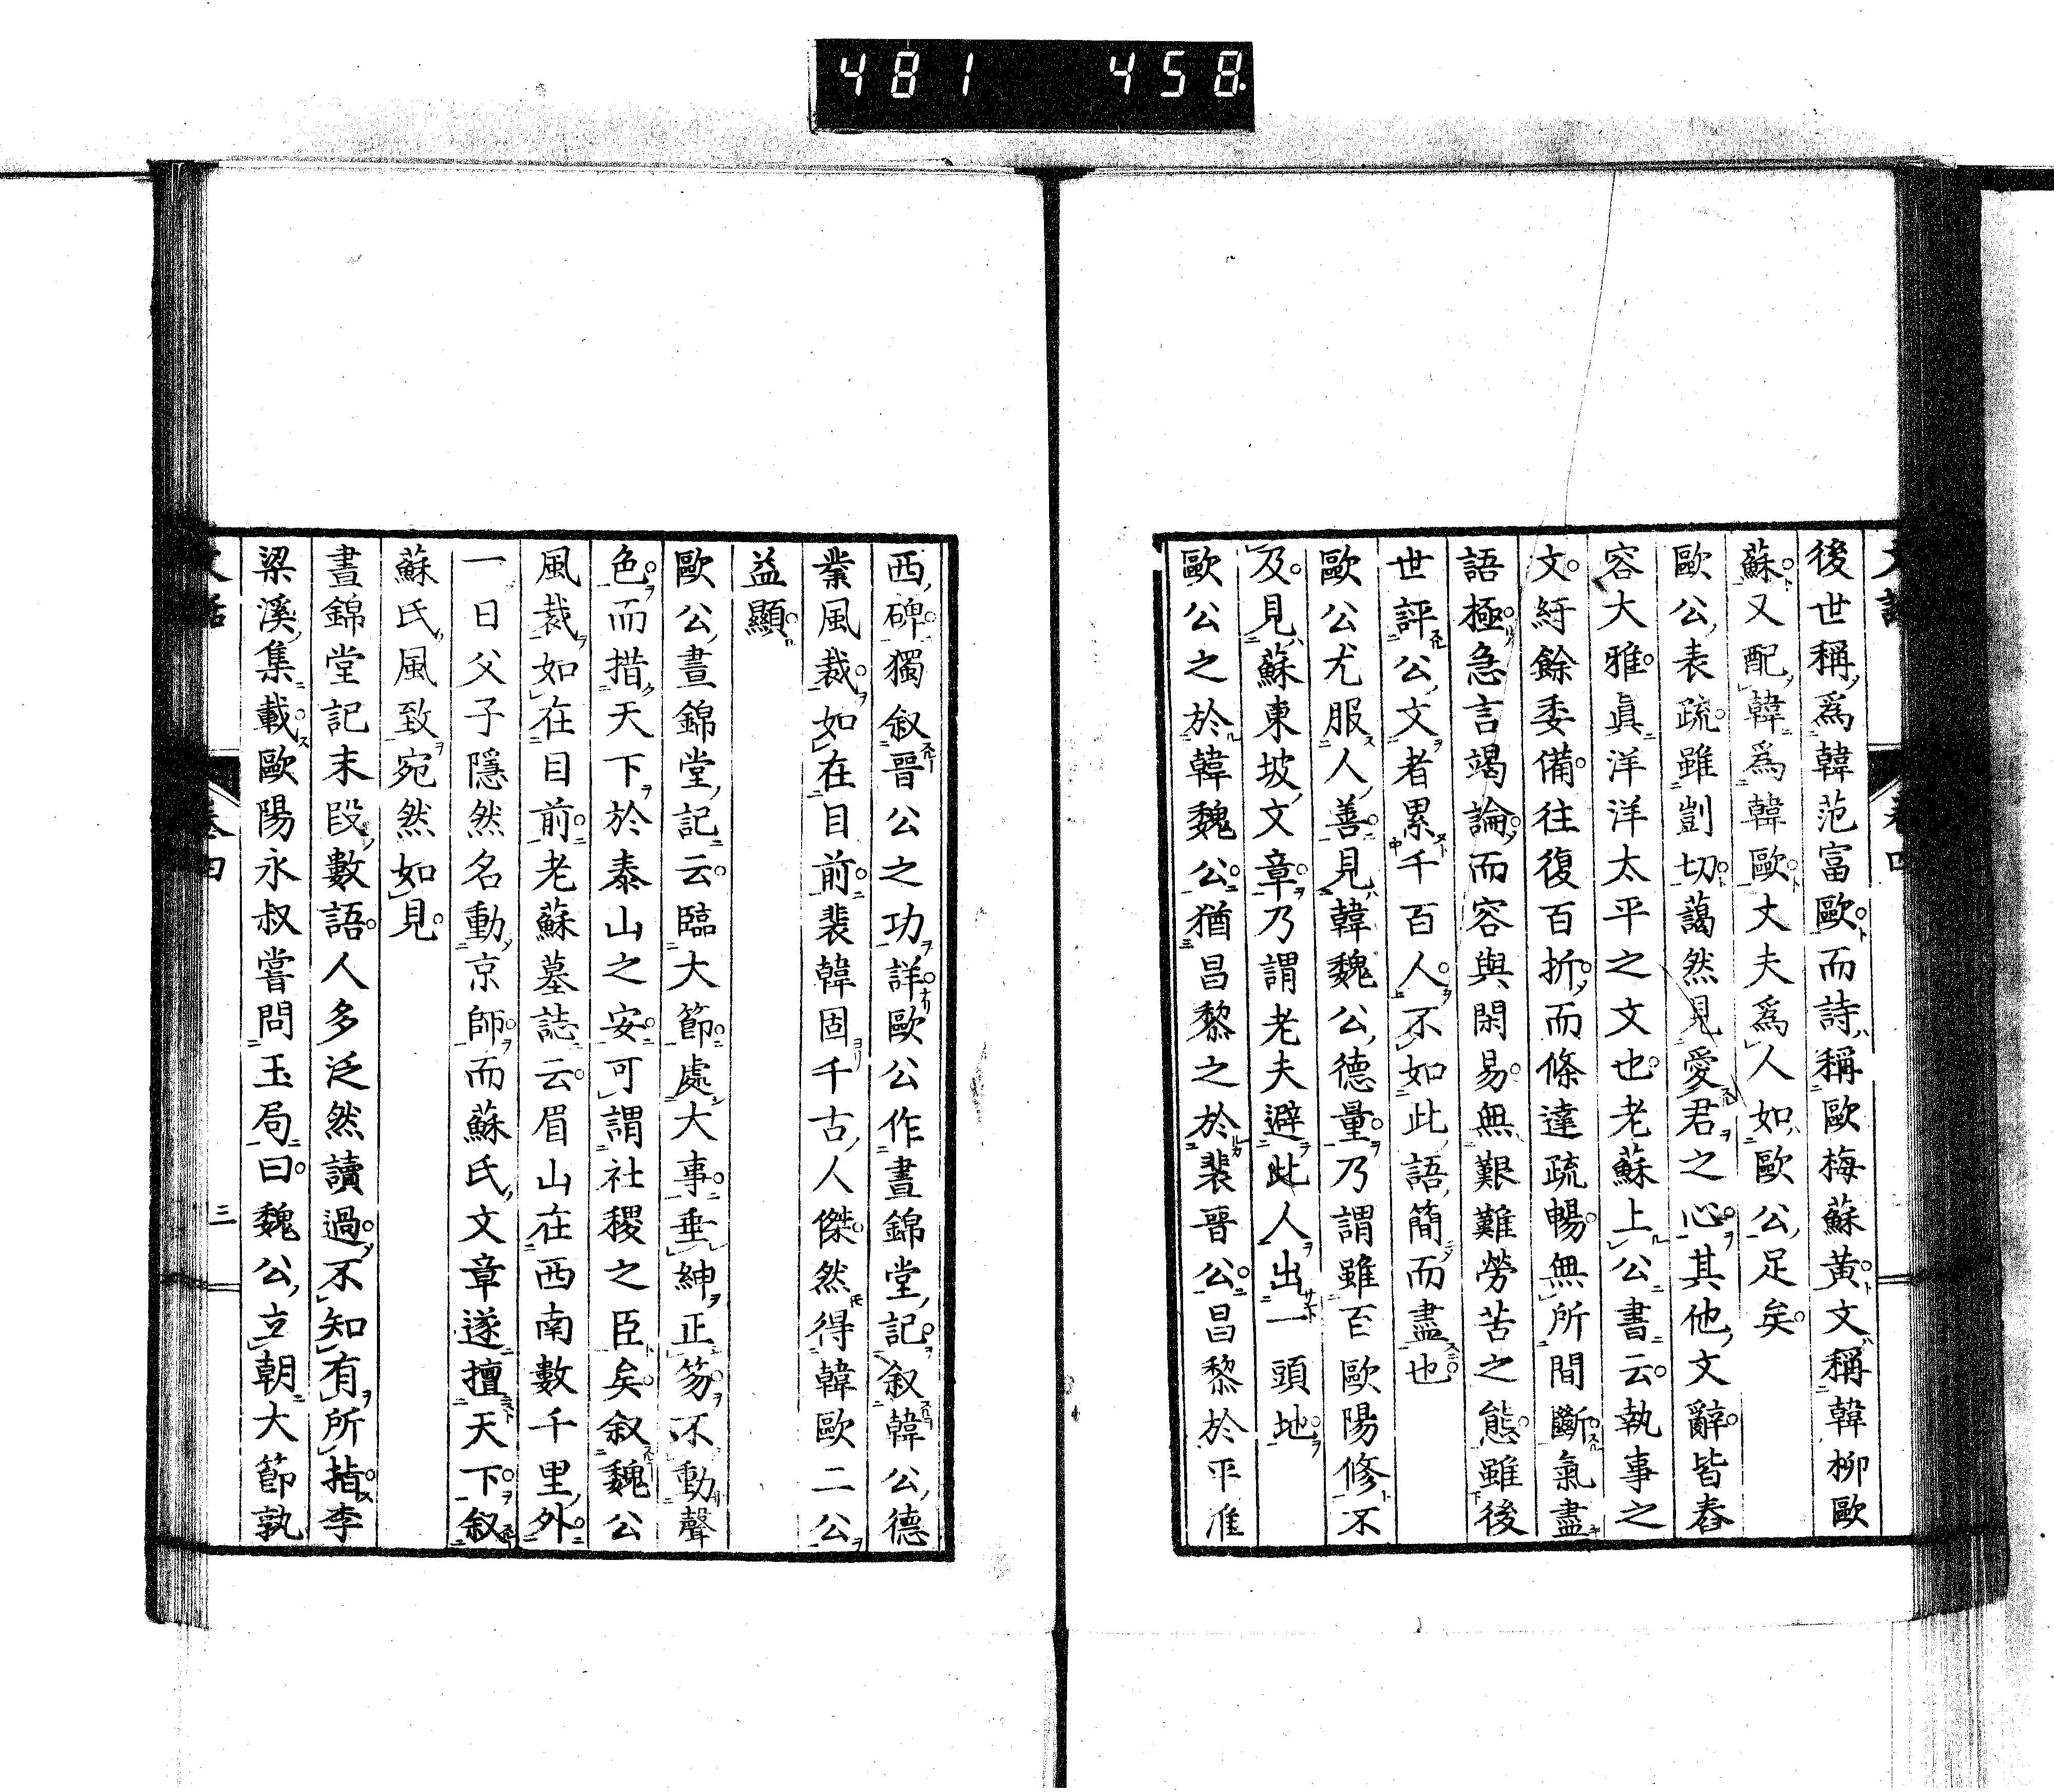 481 458
後世稱爲韓范富歐而詩稱歐梅蘇黃文稱韓柳歐
蘇又配韓爲韓歐丈夫爲人如歐公足矣
歐公表疏雖剴切藹然見愛君之心其他文辭皆舂
容大雅眞洋洋太平之文也老蘇上公書云執事之
文紆餘委備往復百折而條達疏暢無所間斷氣盡
語極急言竭論而容與閑易無艱難勞苦之態雖後
世評公文者累千百人不如此語簡而盡也
歐公尤服人善見韓魏公德量乃謂雖百歐陽修不
及見蘇東坡文章乃謂老夫避此人出一頭地
歐公之於韓魏公猶昌黎之於裴晉公昌黎於平淮
西碑獨叙晉公之功詳歐公作晝錦堂記叙韓公德
業風裁如在目前裴韓固千古人傑然得韓歐二公
益顯
歐公晝錦堂記云臨大節處大事垂紳正笏不動聲
色而措天下於泰山之安可謂社稷之臣矣叙魏公
風裁如在目前老蘇墓誌云眉山在西南數千里外
一日父子隱然名動京師而蘇氏文章遂擅天下叙
蘇氏風致宛然如見
晝錦堂記末段數語人多泛然讀過不知有所指李
梁溪集載歐陽永叔嘗問玉局曰魏公立朝大節孰
三